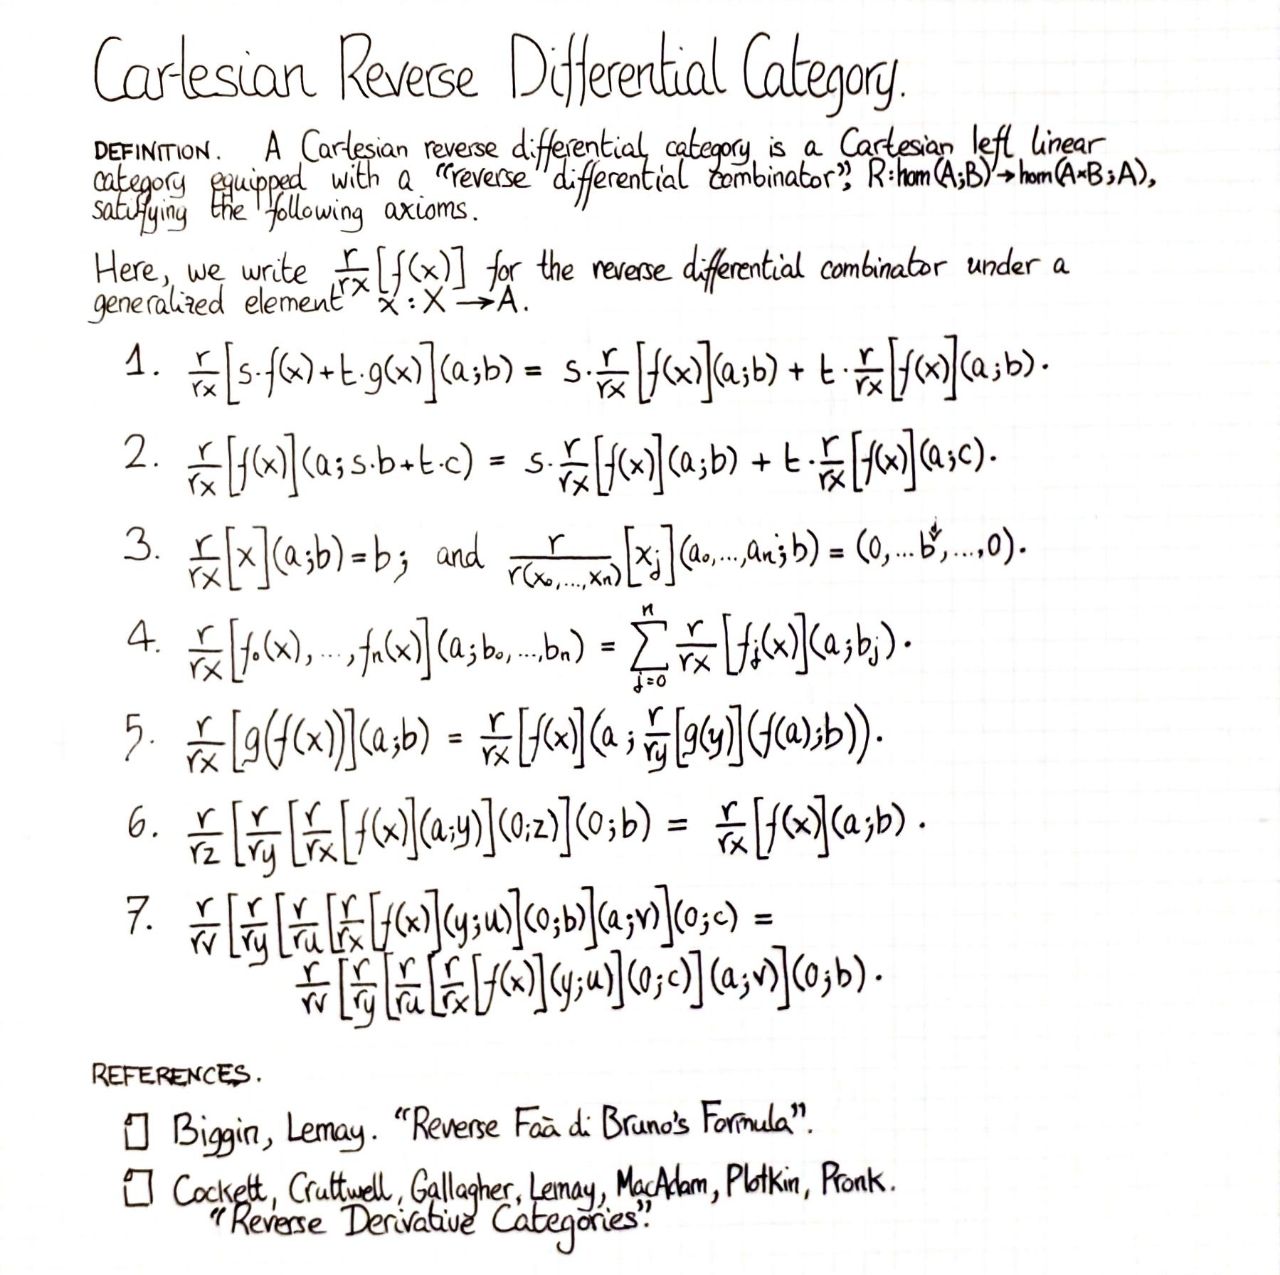 Cartesian Reverse Differential Category.
DEFINITION. A Cartesian reverse differential category is a Cartesian left linear
category equipped with a “reverse differential combinator”, R:hom(A;B)→hom(A×B;A),
satisfying the following axioms.
Here, we write r/rx [f(x)] for the reverse differential combinator under a
generalized element x : X → A.
1. r/rx [s·f(x)+t·g(x)](a;b) = s·r/rx [f(x)](a;b) + t·r/rx [f(x)](a;b).
2. r/rx [f(x)](a; s·b+t·c) = s·r/rx [f(x)](a;b) + t·r/rx [f(x)](a;c).
3. r/rx [x](a;b)=b; and r/r(x₀,...,xₙ) [xⱼ](a₀,...,aₙ;b) = (0,...b↓,...,0).
4. r/rx [f₀(x),...,fₙ(x)](a;b₀,...,bₙ) = ∑ⱼ₌₀ⁿ r/rx [fⱼ(x)](a;bⱼ).
5. r/rx [g(f(x))](a;b) = r/rx [f(x)](a; r/ry [g(y)](f(a);b)).
6. r/rz [r/ry [r/rx [f(x)](a;y)](0;z)](0;b) = r/rx [f(x)](a;b).
7. r/rv [r/ry [r/ru [r/rx [f(x)](y;u)](0;b)](a;v)](0;c) =
r/rv [r/ry [r/ru [r/rx [f(x)](y;u)](0;c)](a;v)](0;b).
REFERENCES.
Biggin, Lemay. “Reverse Faà di Bruno's Formula”.
Cockett, Cruttwell, Gallagher, Lemay, MacAdam, Plotkin, Pronk.
“Reverse Derivative Categories”.